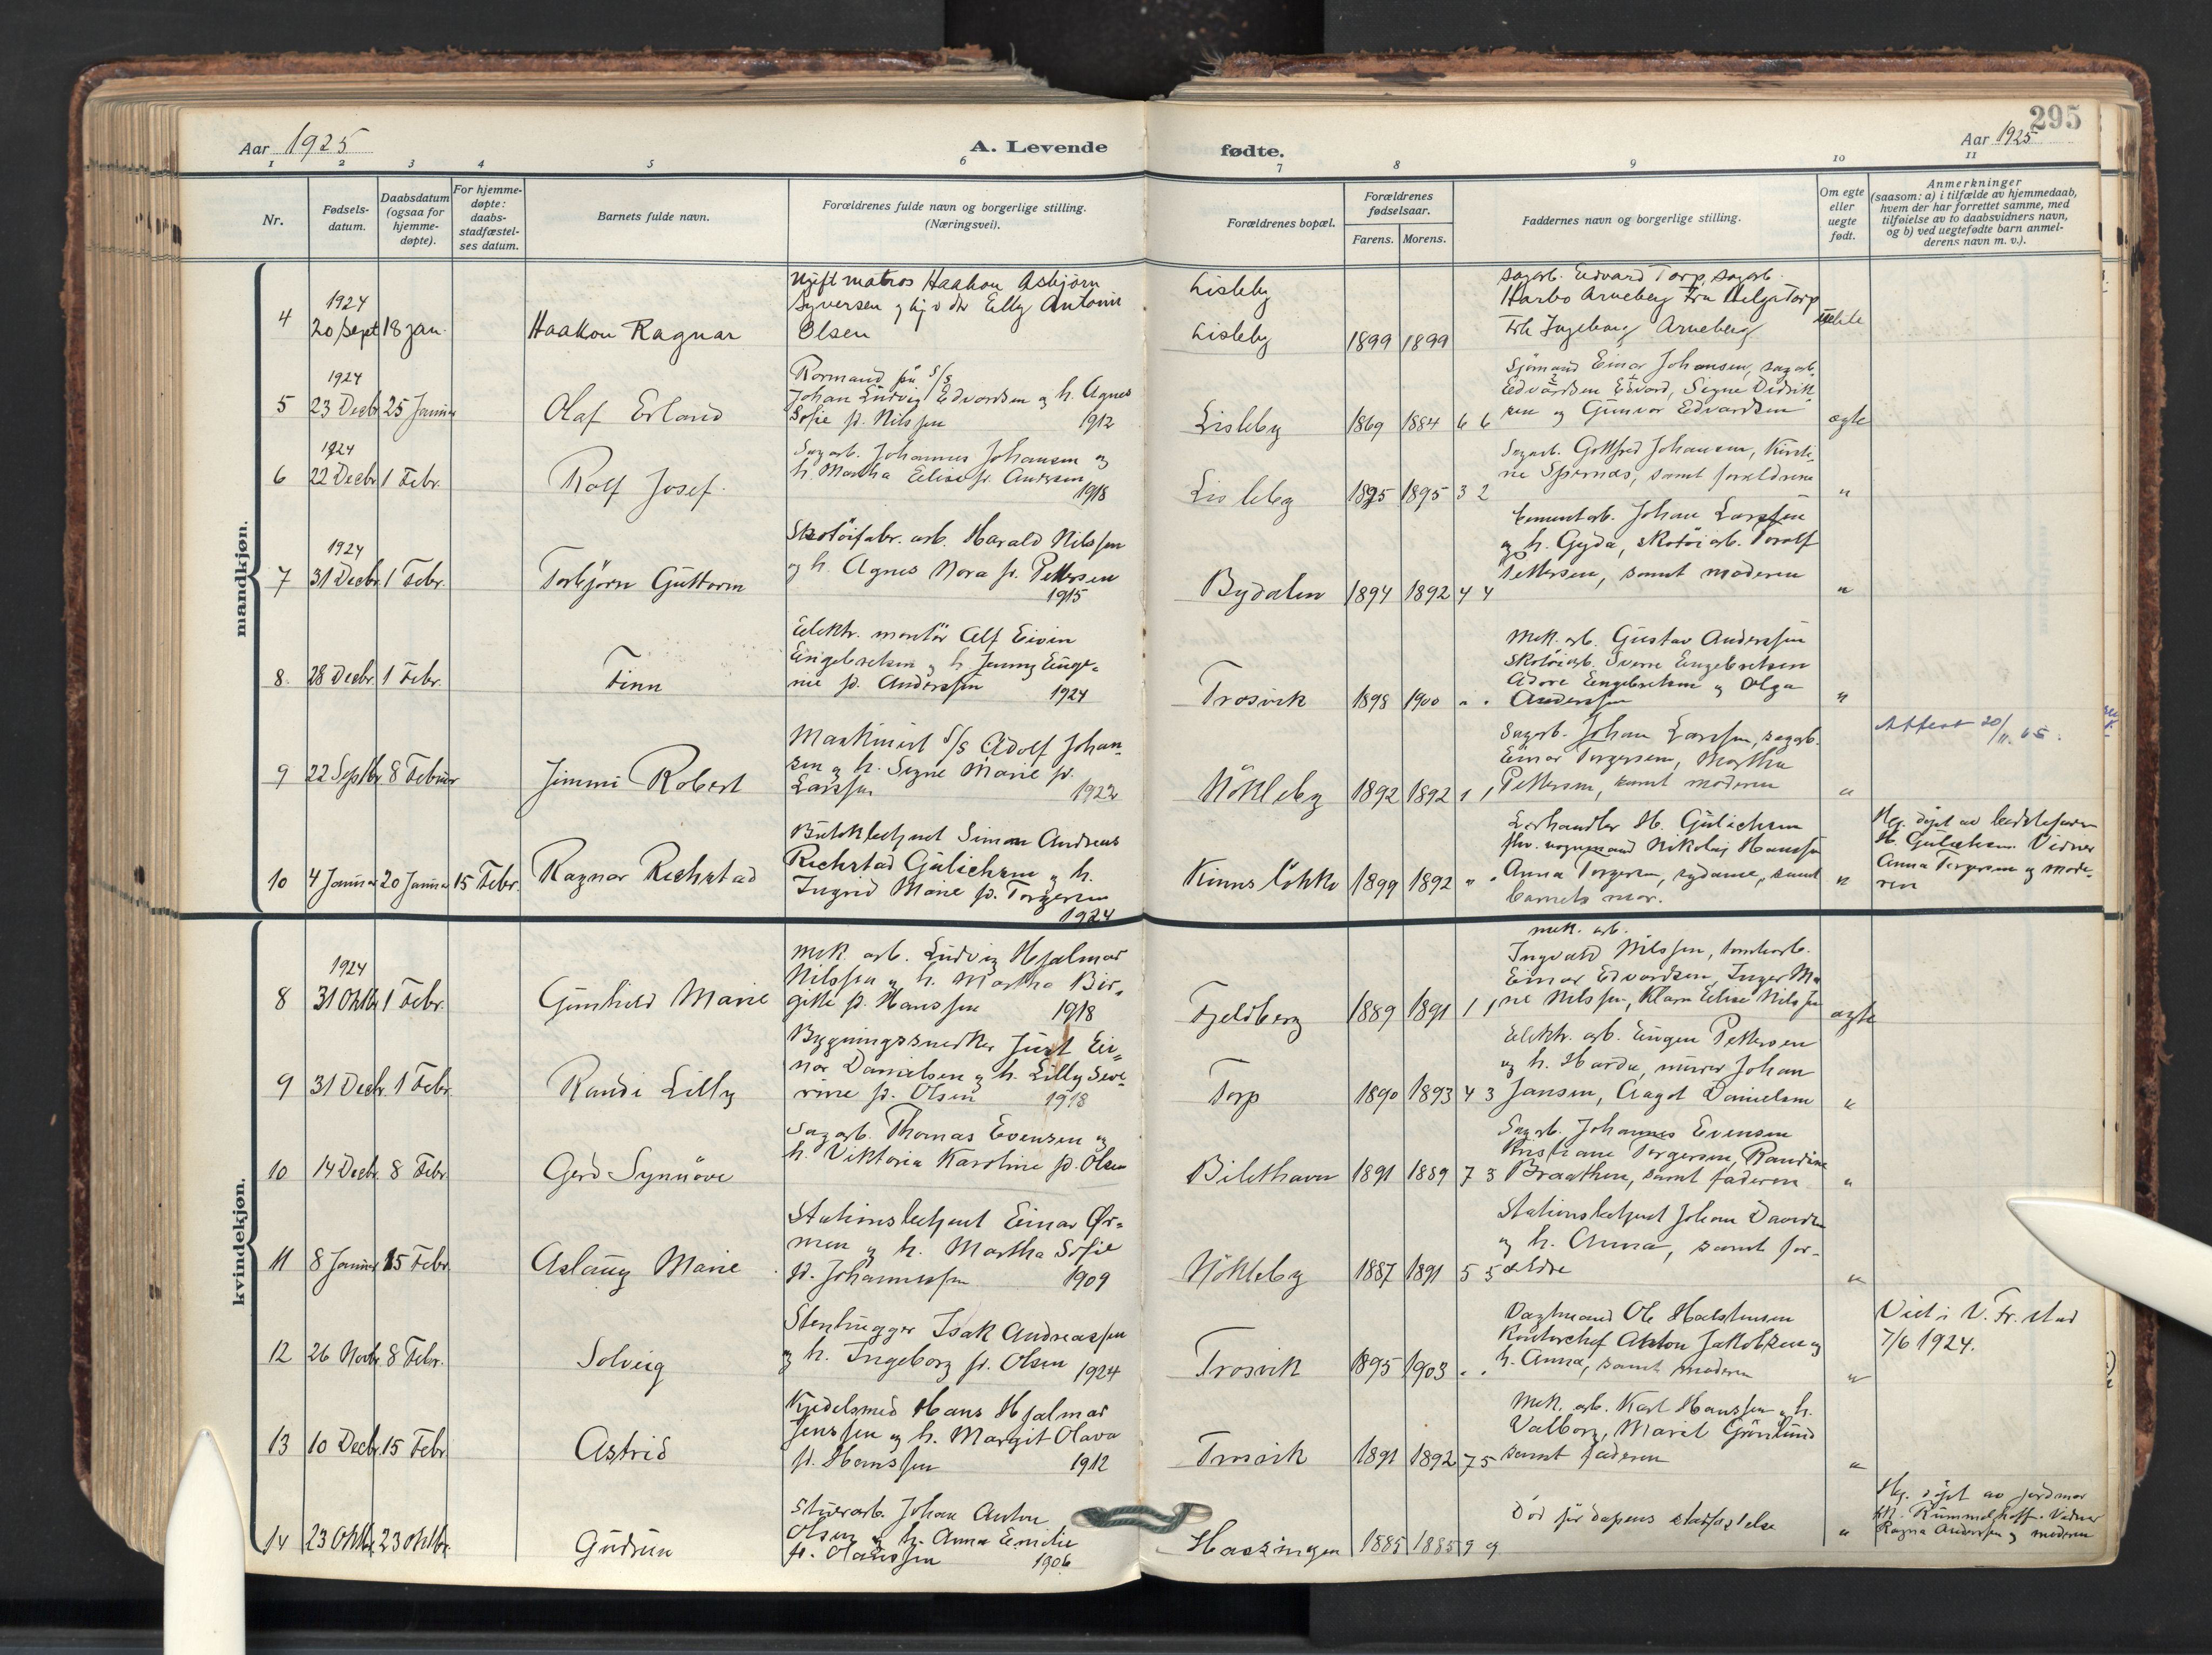 295
Aar 1925
A. Levende
fødte.
Aar 1925
1 2 3 4 5 6 7 8 9 10 11
Nr.
Fødsels-
datum.
Daabsdatum
(ogsaa for
hjemme-
døpte).
For hjemme-
døpte:
daabs-
stadfæstel-
ses datum.
Barnets fulde navn.
Forældrenes fulde navn og borgerlige stilling.
(Næringsvei).
Forældrenes bopæl.
Forældrenes
fødselsaar.
Farens. Morens.
Faddernes navn og borgerlige stilling.
Om egte
eller
uegte
født.
Anmerkninger
(saasom: a) i tilfælde av hjemmedaab,
hvem der har forrettet samme, med
tilføielse av to daabsvidners navn,
og b) ved uegtefødte barn anmel-
derens navn m. v.).
mandkjøn.
4
1924
20 Sept 18 jan.
Haakon Ragnar
Ugift matros Haakon Asbjørn
Syversen og Elly Antonie
Olsen
Lisleby
Lisleby
1899 1899
sagarb. Edvard Torp, sagarb.
Harbo Arneberg Fru Helga Torp
Frk Ingeborg Arneberg
5
1924
23 Decbr 25 Januar
Olaf Erland
Rormand på S/S
Johan Ludvig Edvardsen og h. Agnes
Sofie f. Nilssen 1912
Lisleby
1869 1884 6 6
Sjømand Einar Johansen, sagarb.
Edvardsen Edvard, Signe Didrik
sen og Gunvor Edvardsen
ægte
6
1924
22 Decbr 1 Febr.
Rolf Josef
Sagarb. Johannes Johansen og
h. Martha Elise f. Andersen
1918
Lisleby
1895 1895 3 2
Sagarb. Gottfred Johansen, Kirsti-
ne samt forældrene
"
7
1924
31 Decbr. 1 Febr.
Torbjørn Guttorm
Skotöifabr. arb. Harald Nilssen
og h. Agnes Nora f. Pettersen
1915
Bydalen
1894 1892 4 4
Cementarb. Johan Larssen
og h. Gyda, skotöiarb. Torolf
Pettersen, samt moderen
"
8.
28 Decbr. 1 Febr.
Finn
Elektr. montør Alf Eivin
Engebretsen og h. Jenny Euge-
nie f. Anderssen 1924
Trosvik
1898 1900 " "
Mek. arb. Gustav Anderssen
Skotöiarb. Sverre Engebretsen
Adore Engebretsen og Olga
Anderssen
"
9
22 Septbr. 8 Februar
Jimmi Robert
Maskinist S/S Adolf Johan-
sen og h. Signe Marie f.
Larssen 1922
Nökleby
1892 1892 1 1
Sagarb. Johan Larssen, sagarb.
Einar Torgersen, Martha
Pettersen, samt moderen
"
Attest 20/11.65.
10
4 Januar 20 Januar 15 Febr.
Ragnar Richstad
Butikbetjent Simon Andreas
Richstad Gulichsen og h.
Ingrid Marie f. Torgersen
1924
Kinnsløkka
1899 1892 " "
H. Gulichsen
fhv. vognmand Nikolaj Hanssen
Anna Torgersen, sydame, samt
barnets mor.
"
Hj. døpt av bedstefaren
H. Gulichsen. Vidner
Anna Torgersen og mode-
ren
kvindekjøn.
8
1924
31 Oktbr 1 Febr.
Gunhild Marie
mek. arb. Ludvig Hjalmar
Nilssen og h. Martha Bir-
gitte f. Hanssen 1918
Fjeldberg
1889 1891 1 1
mek. arb.
Ingvald Nilssen, tomtearb.
Einar Edvardsen, Inger Ma-
rie Nilssen, Klara Elise Nilssen
ægte
9
31 Decbr 1 Febr.
Randi Lilly
Bygningssnedker Just Ei-
nar Danielsen og h. Lilly Seve-
rine f. Olsen 1918
Torp
1890 1893 4 3
Elektr. arb. Eugen Pettersen
og h. Harda, murer Johan
Jansen, Aagot Danielsen
"
10
14 Decbr. 8 Febr.
Gerd Synnöve
Sagarb. Thomas Evensen og
h. Viktoria Karoline f. Olsen
1891 1889 7 3
Sagarb. Johannes Evensen
Kristiane Torgersen, Randine
Braathen, samt faderen
"
11
8 Januar 15 Febr.
Aslaug Marie
Stationsbetjent Einar Ør-
men og h. Martha Sofie
f. Johannessen 1909
Nökleby
1887 1891 5 5
Stationsbetjent Johan
og h. Anna, samt for-
ældre
"
12
26 Novbr. 8 Febr.
Solveig
Stenhugger Isak Andreassen
og h. Ingeborg f. Olsen 1924
Trosvik
1895 1903 " "
Vagtmand Ole Halstensen
Kontorchef Anton Jakobsen og
h. Anna, samt moderen
"
Viet i V. Fr. stad
7/6 1924.
13
10 Decbr. 15 Febr
Astrid
Kjedelsmed Hans Hjalmar
Jenssen og h. Margit Olava
f. Hanssen 1912
Trosvik
1891 1892 7 5
Mek. arb. Karl Hanssen og h.
Valborg, Marit Grönlund
samt faderen
"
14
23 Oktbr. 23 Oktbr.
Gudrun
Stuerarb. Johan Anton
Olsen og h. Anna Emilie
f. Olaussen 1906
Hassingen
1885 1885 9 9
Död för dapens stadfæstelse
"
Hj. döpt av jordmor
Rummelhoff. Vidner
Ragna Andersen og moderen